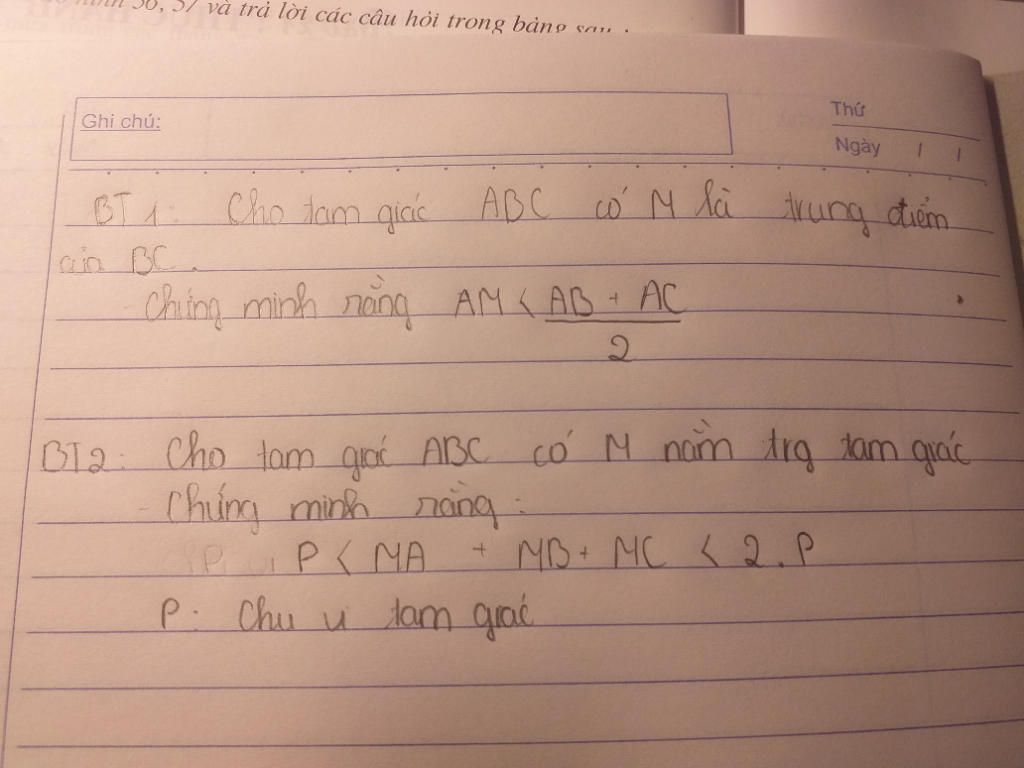 hình 56, 57 và trả lời các câu hỏi trong bảng sau :
Ghi chú:
Thứ
Ngày / /
BT 1: Cho tam giác ABC có M là trung điểm
của BC.
- Chứng minh rằng AM < AB + AC
2
BT2: Cho tam giác ABC có M nằm trg tam giác
- Chứng minh rằng:
P < MA + MB + MC < 2.P
P: Chu vi tam giác